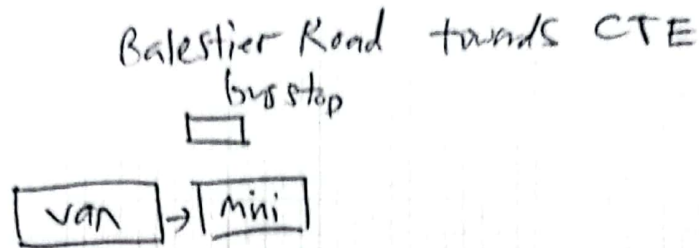 Balestier Road towards CTE
bus stop
van → mini